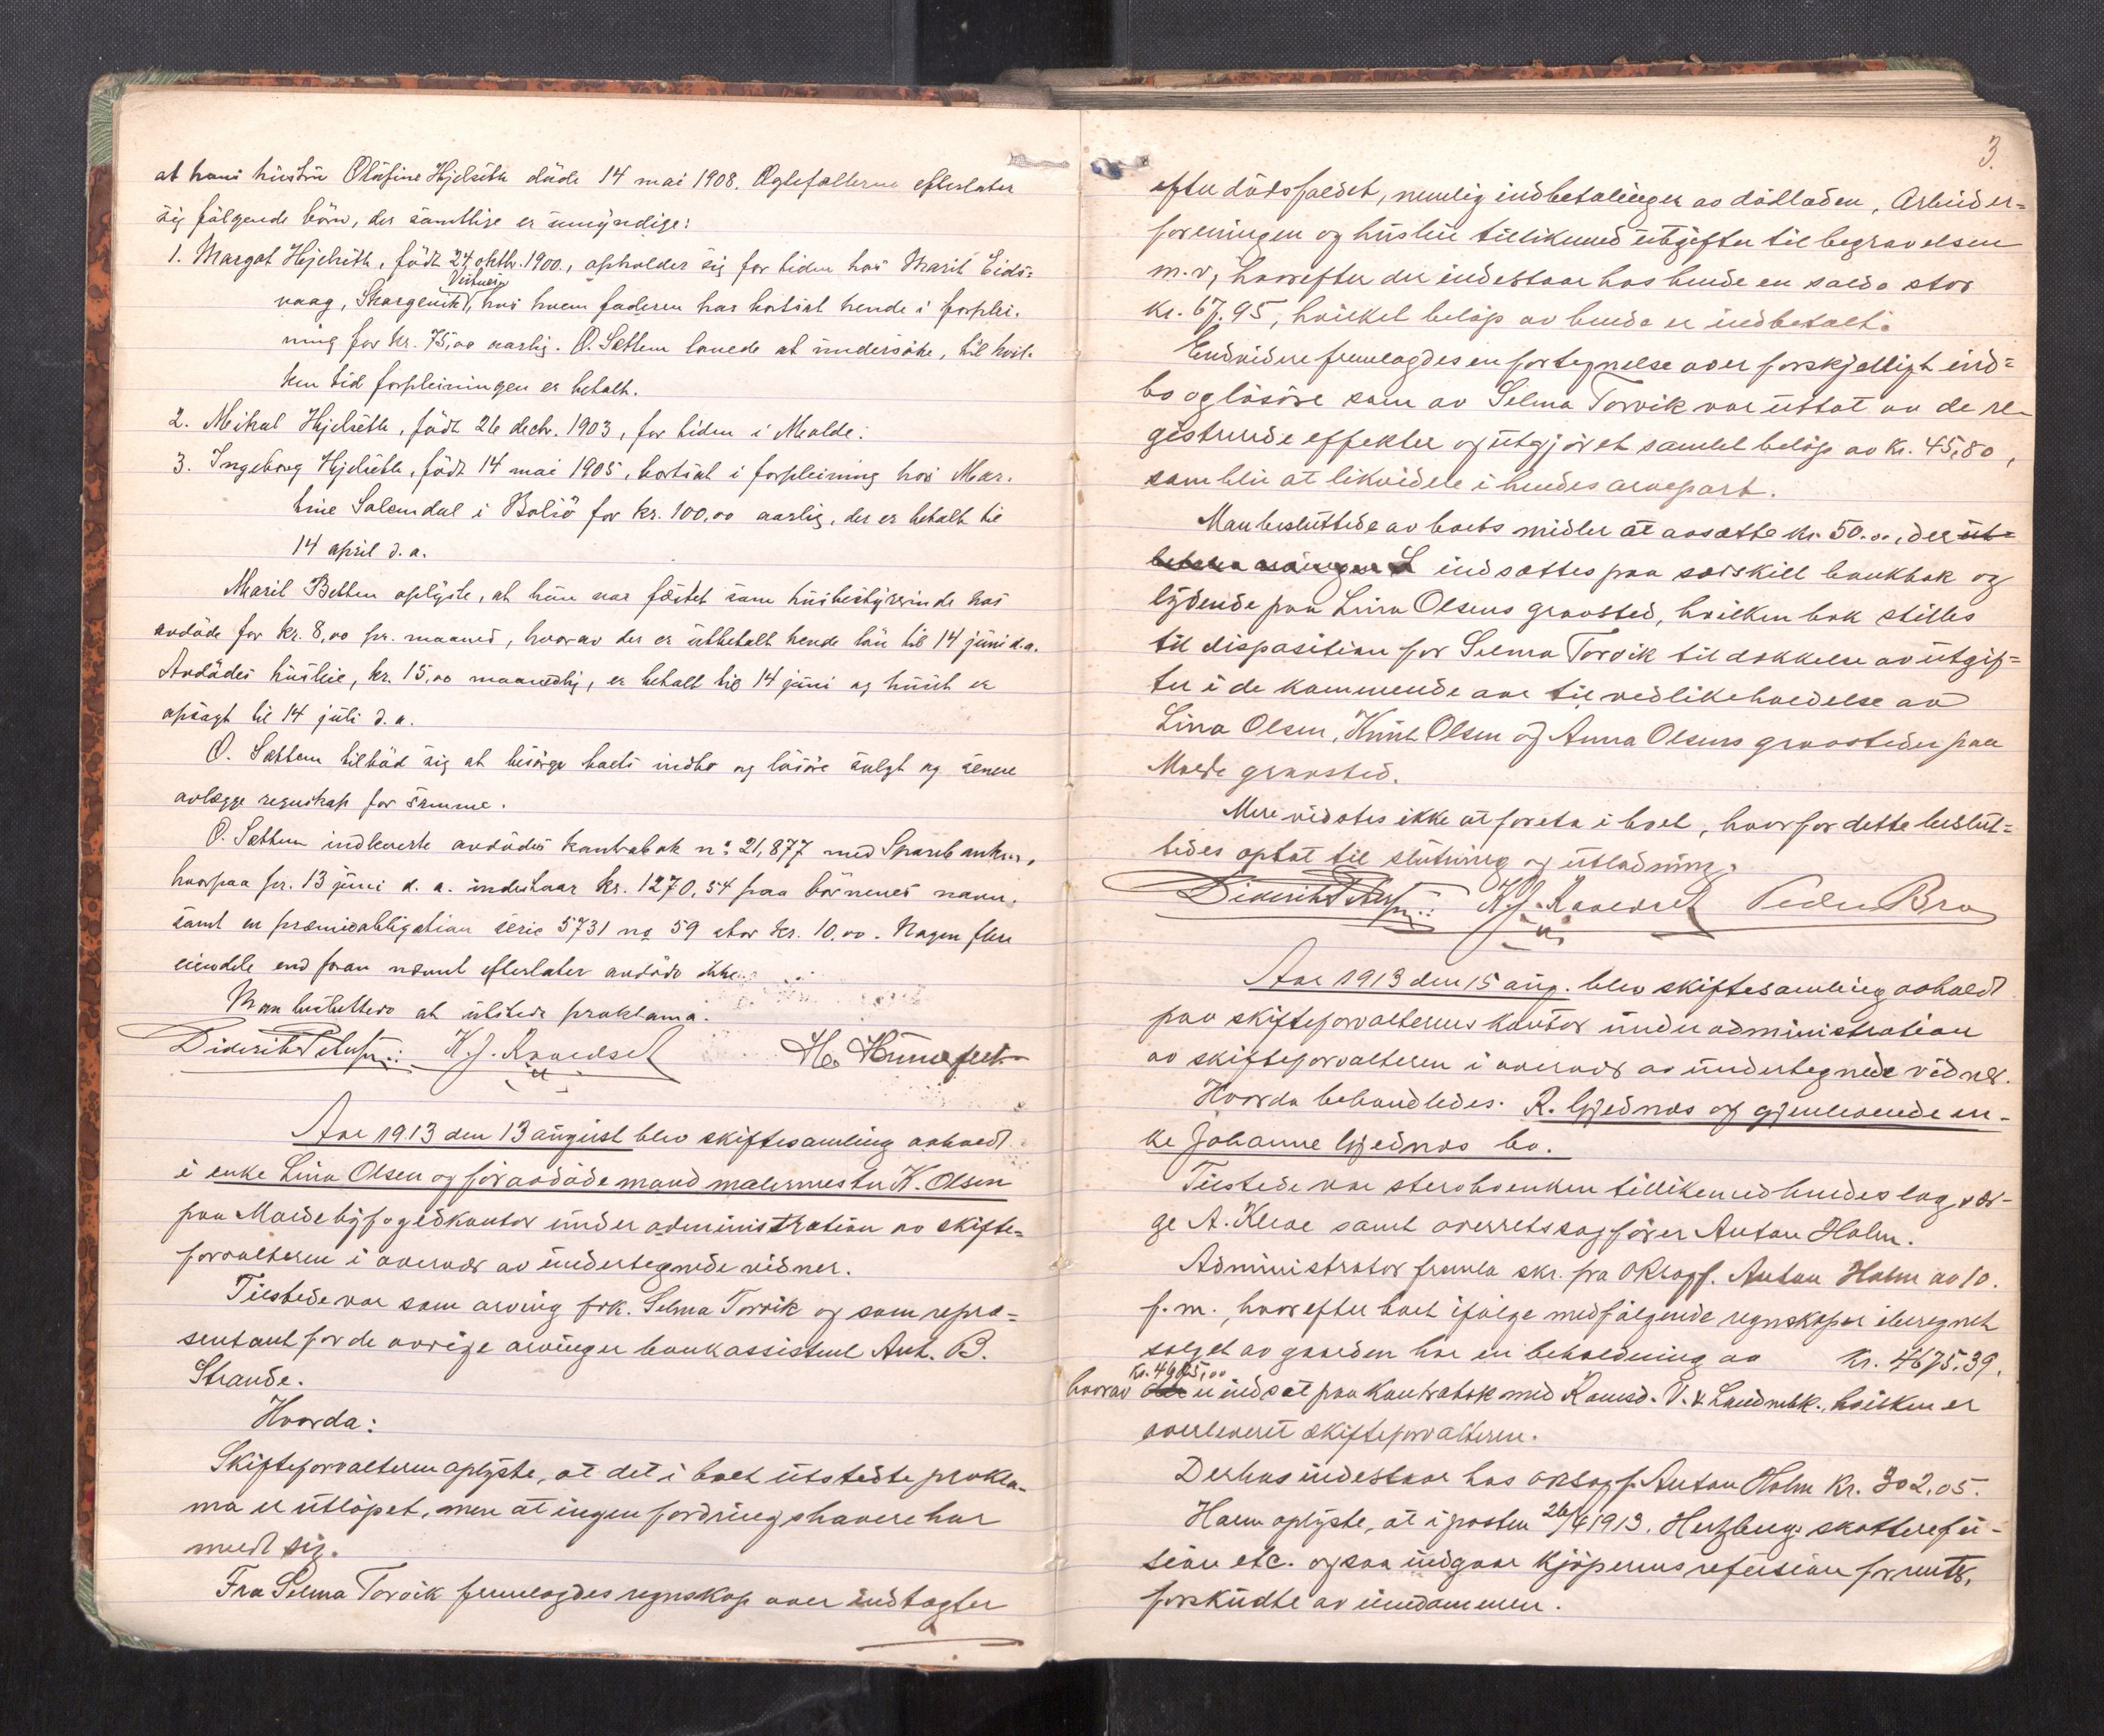 at hans hustru Oläfine Hjelseth döde 14 mai 1908. Egtefællerne efterlater
sig fölgende börn, der samtlige er umyndige:
1. Margot Hjelseth, födt 24 oktbr. 1900, opholder sig for tiden hos Marit Eids-
vaag, Skorgenvik, hos hvem faderen har bortsat hende i forplei-
ning for kr. 75,00 aarlig. O. Sættem lovede at undersöke, til hvil-
ken tid forpleiningen er betalt.
2. Meikal Hjelseth, födt 26 decbr. 1903, for tiden i Molde.
3. Ingeborg Hjelseth, födt 14 mai 1905, bortsat i forpleining hos Mar-
tine Solemdal i Bolsö for kr. 100,00 aarlig, der er betalt til
14 april d.a.
Marit Betten oplyste, at hun var fæstet som husbestyrerinde hos
avdöde for kr. 8,00 pr. maaned, hvorav der er utbetalt hende lön til 14 juni d.a.
Avdödes husleie, kr. 15,00 maanedlig, er betalt til 14 juni og huset er
opsagt til 14 juli d.a.
O. Sættem tilböd sig at besörge boets indbo og lösöre solgt og senere
avlægge regnskap for samme.
O. Sættem indleverte avdödes kontrabok nº 21,877 med Sparebanken,
hvorpaa pr. 13 juni d.a. indestaar kr. 1270,54 paa börnenes navn,
samt en præmieobligation serie 5731 no 59 stor kr. 10,00. Nogen flere
eiendele end foran nævnt efterlater avdöde ikke.
Man besluttede at utstede proklama.
K. J. Roaldset
Aar 1913 den 13 august blev skiftesamling avholdt
i enke Lina Olsen og foravdöde mand malermester K. Olsen
paa Molde byfogedkontor under administration av skifte-
forvalteren i overvær av undertegnede vidner.
Tilstede var som arving frk. Selma Torvik og som repræ-
sentant for de övrige arvinger bankassistent Ant. B.
Strande.
Hvorda:
Skifteforvalteren oplyste, at det i boet utstedte prokla-
ma er utlöpet, men at ingen fordringshavere har
meldt sig.
Fra Selma Torvik fremlagdes regnskap over indtægter
3.
efter dödsfaldet, nemlig indbetalinger av dödladen, Arbeider-
foreningen og husleie tillikemed utgifter til begravelsen
m.v., hvorefter der indestaar hos hende en saldo stor
kr. 67.95, hvilket belöp av hende er indbetalt.
Endvidere fremlagdes en fortegnelse over forskjelligt ind-
bo og lösöre som av Selma Torvik var uttat av de re-
gistrerede effekter og utgjör et samlet belöp av kr. 45,80,
som blir at likvidere i hendes arvepart.
Man besluttede av boets midler at avsætte kr. 50.00, der ut-
indsættes paa særskilt bankbok og
lydende paa Lina Olsens gravsted, hvilken bok stilles
til disposition for Selma Torvik til dækkelse av utgif-
ter i de kommende aar til vedlikeholdelse av
Lina Olsen, Knut Olsen og Anna Olsens gravsteder paa
Molde gravsted.
Mere vidstes ikke at foreta i boet, hvorfor dette beslut-
tedes optat til slutning og utlodning.
K. J. Roaldset Peder Bro
Aar 1913 den 15 aug. blev skiftesamling avholdt
paa skifteforvalterens kontor under administration
av skifteforvalteren i overvær av undertegnede vidner.
Hvorda behandledes: R. Gjednæs og gjenlevende en-
ke Johanne Gjednæs bo.
Tilstede var sterboenken tillikemed hendes lagvær-
ge A. Kleve samt overretssagförer Anton Holm.
Administrator fremla skr. fra ORsagf. Anton Holm av 10.
f.m., hvorefter boet ifölge medfölgende regnskaper iberegnet
salget av gaarden har en beholdning av kr. 4675.39.
kr. 4605,00
hvorav er indsat paa kontrabok med Romsd. V. & Landmbk., hvilken er
overleveret skifteforvalteren.
Derhos indestaar hos oRsagf. Anton Holm kr. 302.05.
Holm oplyste, at i posten 26/6 1913. Hertzberg: skatterefu-
sion etc. ogsaa indgaar kjöperens refusion for renter,
forskudte av umdommen.